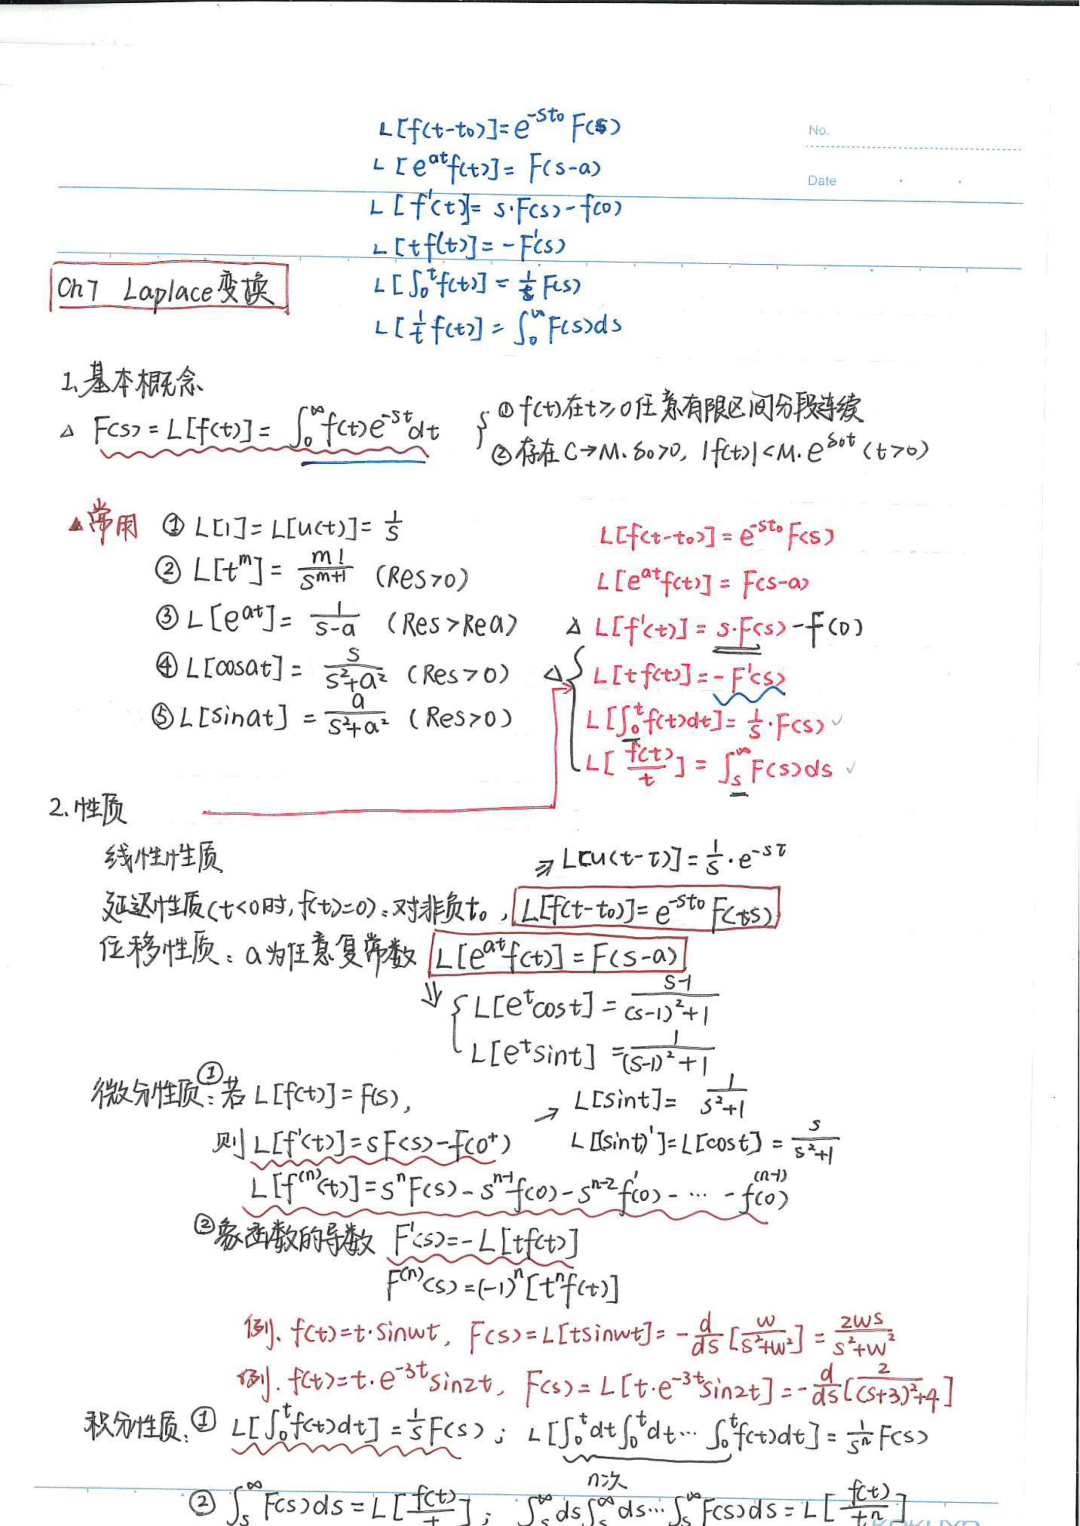 L[f(t-t₀)]=e^{-st₀} F(s)
No.
L[e^{at}f(t)]= F(s-a)
Date
L[f'(t)]= s·F(s)-f(0)
L[tf(t)]=-F'(s)
L[∫₀^t f(t)]= 1/s F(s)
L[1/t f(t)]= ∫₀^∞ F(s)ds
Ch7 Laplace变换
1、基本概念
△ F(s)=L[f(t)]= ∫₀^∞ f(t)e^{-st}dt
{ ① f(t)在t≥0任意有限区间分段连续
② 存在C→M. s₀>0, |f(t)|<M·e^{s₀t} (t>0)
▲常用 ① L[1]=L[u(t)]= 1/s
② L[t^m]= m!/s^{m+1} (Res>0)
③ L[e^{at}]= 1/(s-a) (Res>Rea)
④ L[cosat]= s/(s²+a²) (Res>0)
⑤ L[sinat] = a/(s²+a²) (Res>0)
L[f(t-t₀)]=e^{-st₀}F(s)
L[e^{at}f(t)]= F(s-a)
△ L[f'(t)]= s·F(s)-F(0)
△ { L[tf(t)]=-F'(s)
L[∫₀^t f(t)dt]= 1/s·F(s) ✓
L[f(t)/t]= ∫_s^∞ F(s)ds ✓
2、性质
线性性质
⇒ L[u(t-τ)]= 1/s·e^{-sτ}
延迟性质(t<0时, f(t)=0):对非负t₀, L[f(t-t₀)]=e^{-st₀}F(s)
位移性质: a为任意复常数 L[e^{at}f(t)]=F(s-a)
⇓ { L[e^t cost]= (s-1)/((s-1)²+1)
L[e^t sint] = 1/((s-1)²+1)
微分性质①:若L[f(t)]=F(s),
→ L[sint]= 1/(s²+1)
则L[f'(t)]=sF(s)-f(0⁺)
L[(sint)']=L[cost]= s/(s²+1)
L[f^{(n)}(t)]=s^nF(s)-s^{n-1}f(0)-s^{n-2}f'(0)-…-f^{(n-1)}(0)
②象函数的导数 F'(s)=-L[tf(t)]
F^{(n)}(s)=(-1)^n[t^nf(t)]
例、f(t)=t·sinwt, F(s)=L[tsinwt]=-d/ds[w/(s²+w²)]= 2ws/(s²+w²)
例. f(t)=t·e^{-3t}sin2t, F(s)=L[t·e^{-3t}sin2t]=-d/ds[2/((s+3)²+4)]
积分性质:① L[∫₀^t f(t)dt]= 1/s F(s); L[∫₀^t dt∫₀^t dt…∫₀^t f(t)dt]= 1/s^n F(s)
n次
② ∫_s^∞ F(s)ds=L[f(t)/t]; ∫_s^∞ ds∫_s^∞ ds…∫_s^∞ F(s)ds=L[f(t)/t^n]
KOKUYO